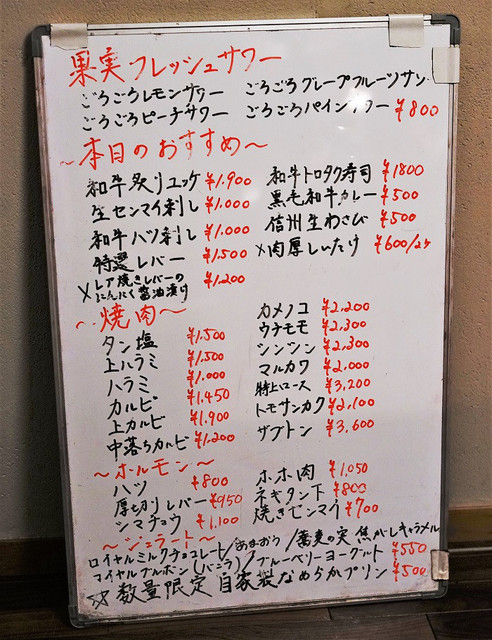 果実フレッシュサワー
ごろごろレモンサワー ごろごろグレープフルーツサワー
ごろごろピーチサワー ごろごろパインサワー ¥800
~本日のおすすめ~
和牛炙りユッケ ¥1,900
生センマイ刺し ¥1,000
和牛ハツ刺し ¥1,000
特選レバー ¥1,500
×レア焼きレバーのにんにく醤油漬け ¥1,200
和牛トロタク寿司 ¥1800
黒毛和牛カレー ¥500
信州生わさび ¥500
×肉厚しいたけ ¥600/2ケ
~焼肉~
タン塩 ¥1,500
上ハラミ ¥1,500
ハラミ ¥1,000
カルビ ¥1,450
上カルビ ¥1,900
中落ちカルビ ¥1,200
カメノコ ¥2,200
ウチモモ ¥2,300
シンシン ¥2,300
マルカワ ¥2,000
特上ロース ¥3,200
トモサンカク ¥2,100
ザブトン ¥3,600
~ホルモン~
ハツ ¥800
厚切りレバー ¥950
シマチョウ ¥1,100
ホホ肉 ¥1,050
ネギタン下 ¥800
焼きセンマイ ¥700
~ジェラート~
ロイヤルミルクチョコレート/あまおう/蕎麦の実 焦がしキャラメル
マイヤルブルボン(バニラ)/ブルーベリーヨーグルト ¥550
☆数量限定 自家製なめらかプリン ¥500